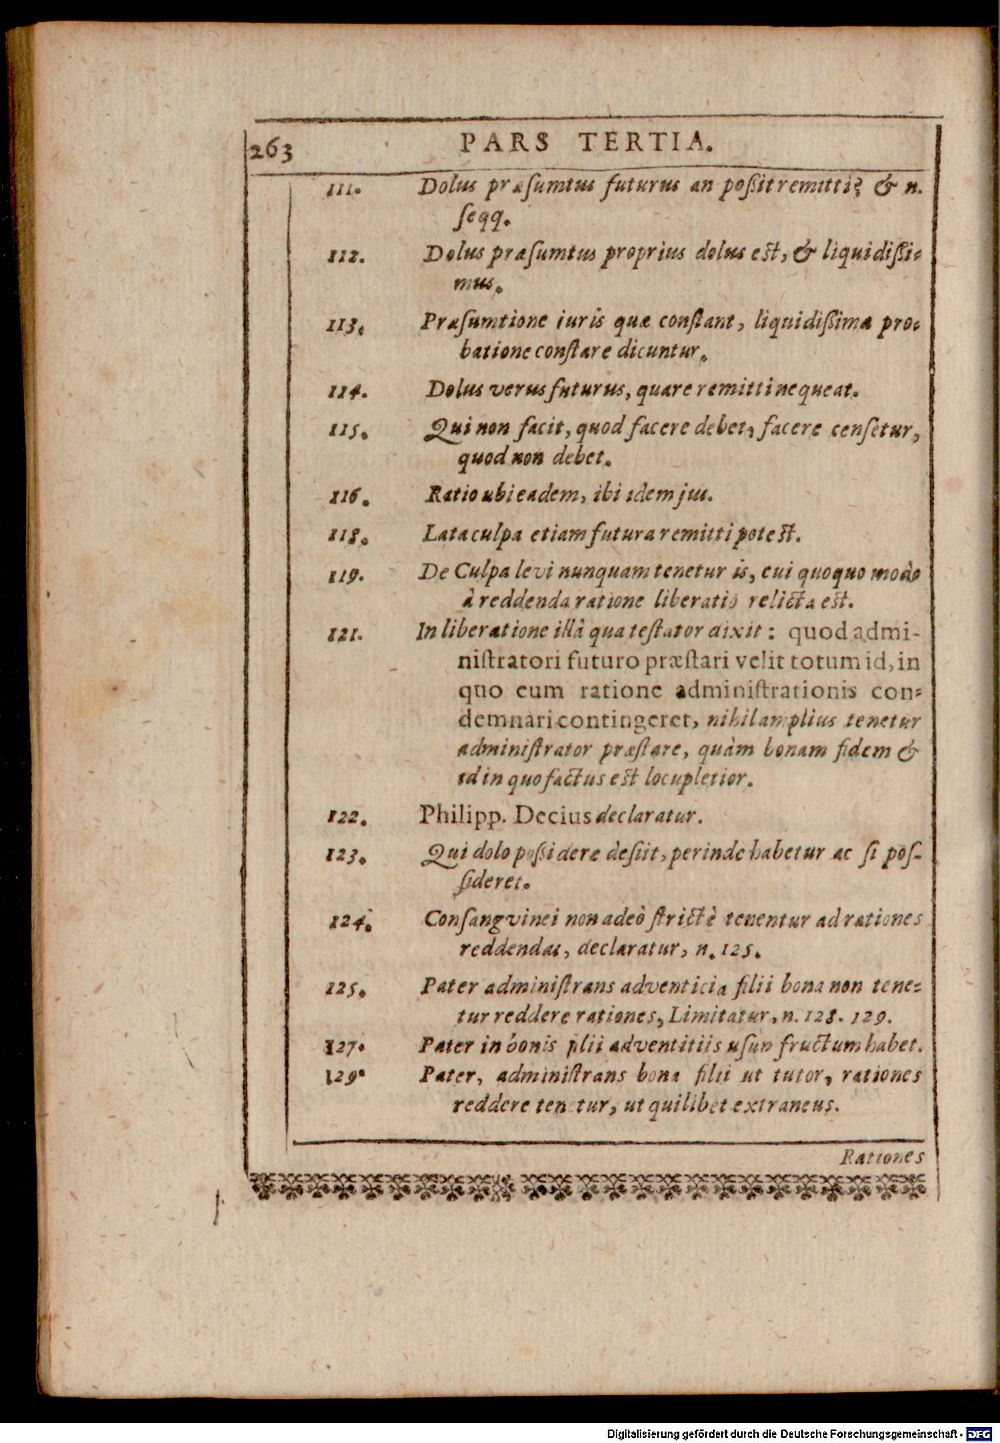 263 PARS TERTIA.
111. Dolus præsumtus futurus an possit remitti? & n.
seqq.
112. Dolus præsumtus proprius dolus est, & liquidissi-
mus.
113. Præsumtione iuris quæ constant, liquidissima pro-
batione constare dicuntur.
114. Dolus verus futurus, quare remitti nequeat.
115. Qui non facit, quod facere debet, facere censetur,
quod non debet.
116. Ratio ubi eadem, ibi idem jus.
118. Lata culpa etiam futura remitti potest.
119. De Culpa levi nunquam tenetur is, cui quoquo modo
à reddenda ratione liberatio relicta est.
121. In liberatione illâ qua testator dixit: quod admi-
nistratori futuro præstari velit totum id, in
quo eum ratione administrationis con-
demnari contingeret, nihil amplius tenetur
administrator præstare, quàm bonam fidem &
id in quo factus est locupletior.
122. Philipp. Decius declaratur.
123. Qui dolo possidere desiit, perinde habetur ac si pos-
sideret.
124. Consangvinei non adeò strictè tenentur ad rationes
reddendas, declaratur, n. 125.
125. Pater administrans adventicia filii bona non tene-
tur reddere rationes, Limitatur, n. 128. 129.
127. Pater in bonis filii adventitiis usum fructum habet.
129. Pater, administrans bona filii ut tutor, rationes
reddere tenetur, ut quilibet extraneus.
Rationes
Digitalisierung gefördert durch die Deutsche Forschungsgemeinschaft - DFG